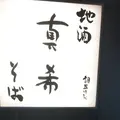 地酒
真希
そば